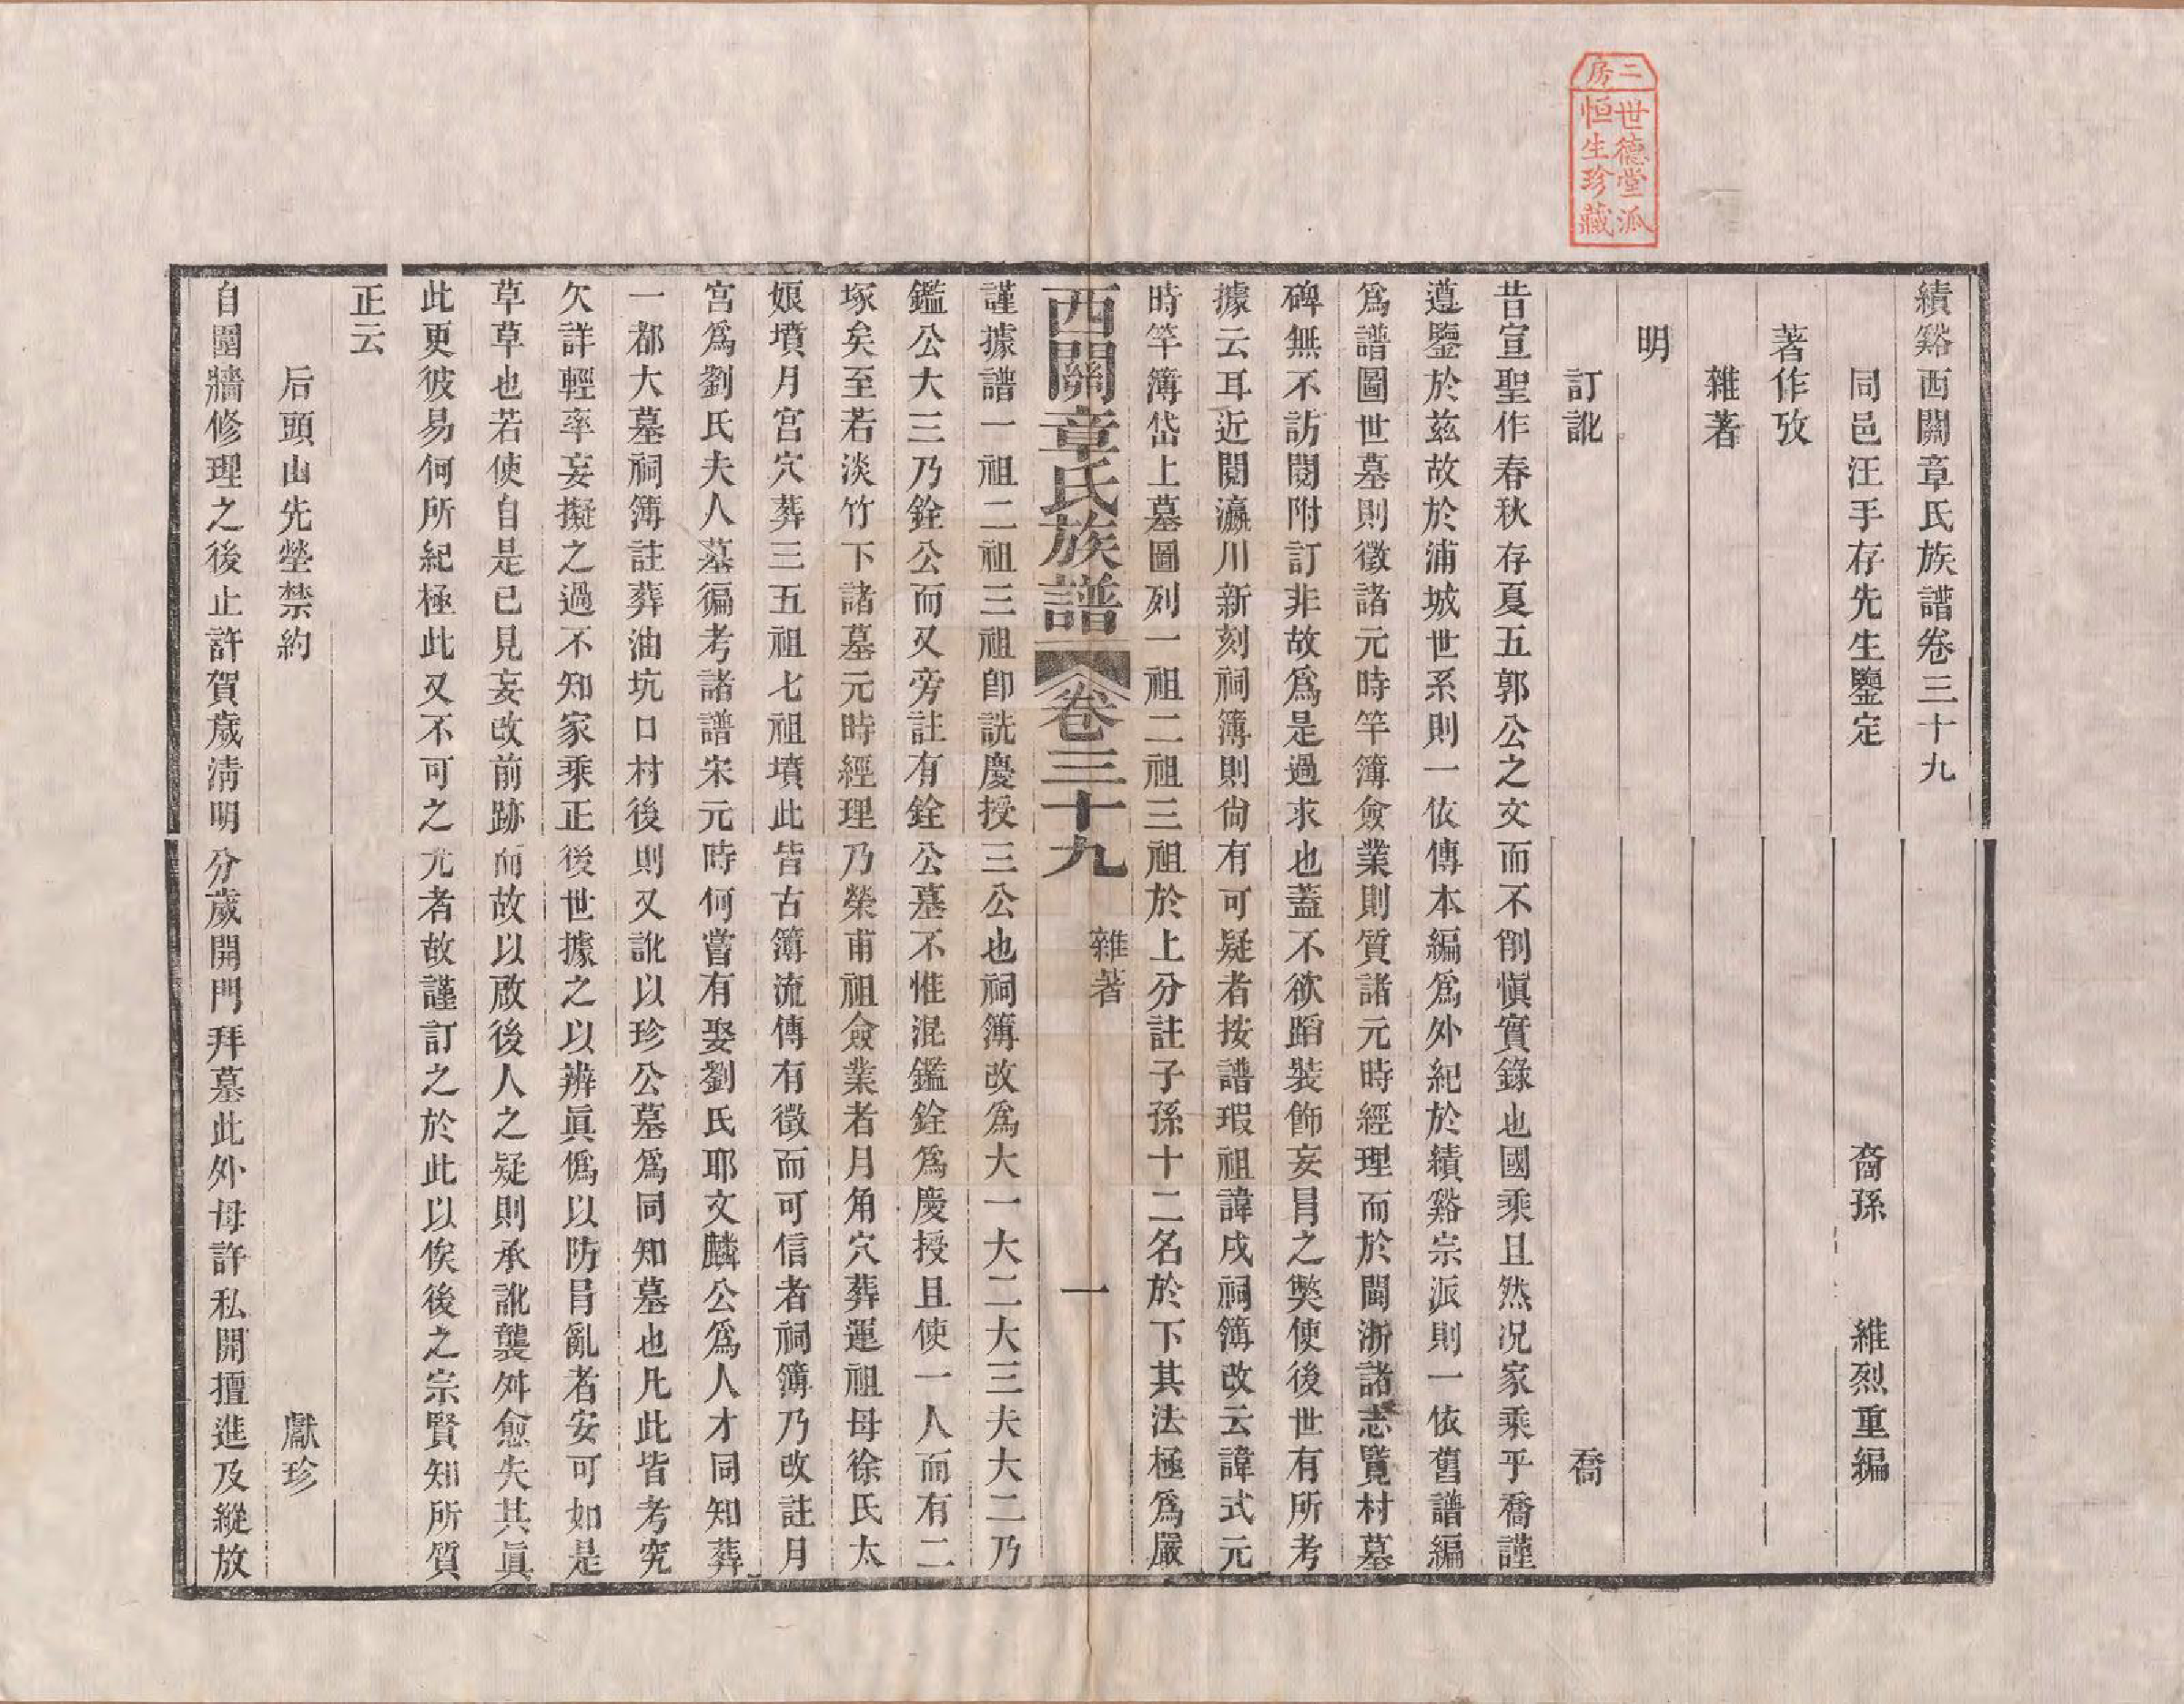 二房
世德堂派
恒生珍藏
績谿西關章氏族譜卷三十九
同邑汪手存先生鑒定　裔孫　維烈重編
著作攷
雜著
明
訂訛　喬
昔宣聖作春秋存夏五郭公之文而不削愼實錄也國乘且然况家乘乎喬謹
遵鑒於兹故於浦城世系則一依傳本編爲外紀於績谿宗派則一依舊譜編
爲譜圖世墓則徵諸元時竿簿僉業則質諸元時經理而於閩浙諸志覽村墓
碑無不訪閱附訂非故爲是過求也蓋不欲蹈裝飾妄冐之獘使後世有所考
據云耳近閱瀛川新刻祠簿則尙有可疑者按譜瑕祖諱戌祠簿改云諱式元
時竿簿岱上墓圖列一祖二祖三祖於上分註子孫十二名於下其法極爲嚴
西關章氏族譜　卷三十九　雜著　一
謹據譜一祖二祖三祖卽詵慶授三公也祠簿改爲大一大二大三夫大二乃
鑑公大三乃銓公而又旁註有銓公墓不惟混鑑銓爲慶授且使一人而有二
塚矣至若淡竹下諸墓元時經理乃榮甫祖僉業者月角穴葬運祖母徐氏太
娘墳月宫穴葬三五祖七祖墳此皆古簿流傳有徵而可信者祠簿乃改註月
宫爲劉氏夫人墓徧考諸譜宋元時何嘗有娶劉氏耶文麟公爲人才同知葬
一都大墓祠簿註葬油坑口村後則又訛以珍公墓爲同知墓也凡此皆考究
欠詳輕率妄擬之過不知家乘正後世據之以辨眞僞以防冐亂者安可如是
草草也若使自是已見妄改前跡而故以啟後人之疑則承訛襲舛愈失其眞
此更彼易何所紀極此又不可之尤者故謹訂之於此以俟後之宗賢知所質
正云
后頭山先塋禁約　獻珍
自圍牆修理之後止許賀歲淸明分歲開門拜墓此外毋許私開擅進及縱放